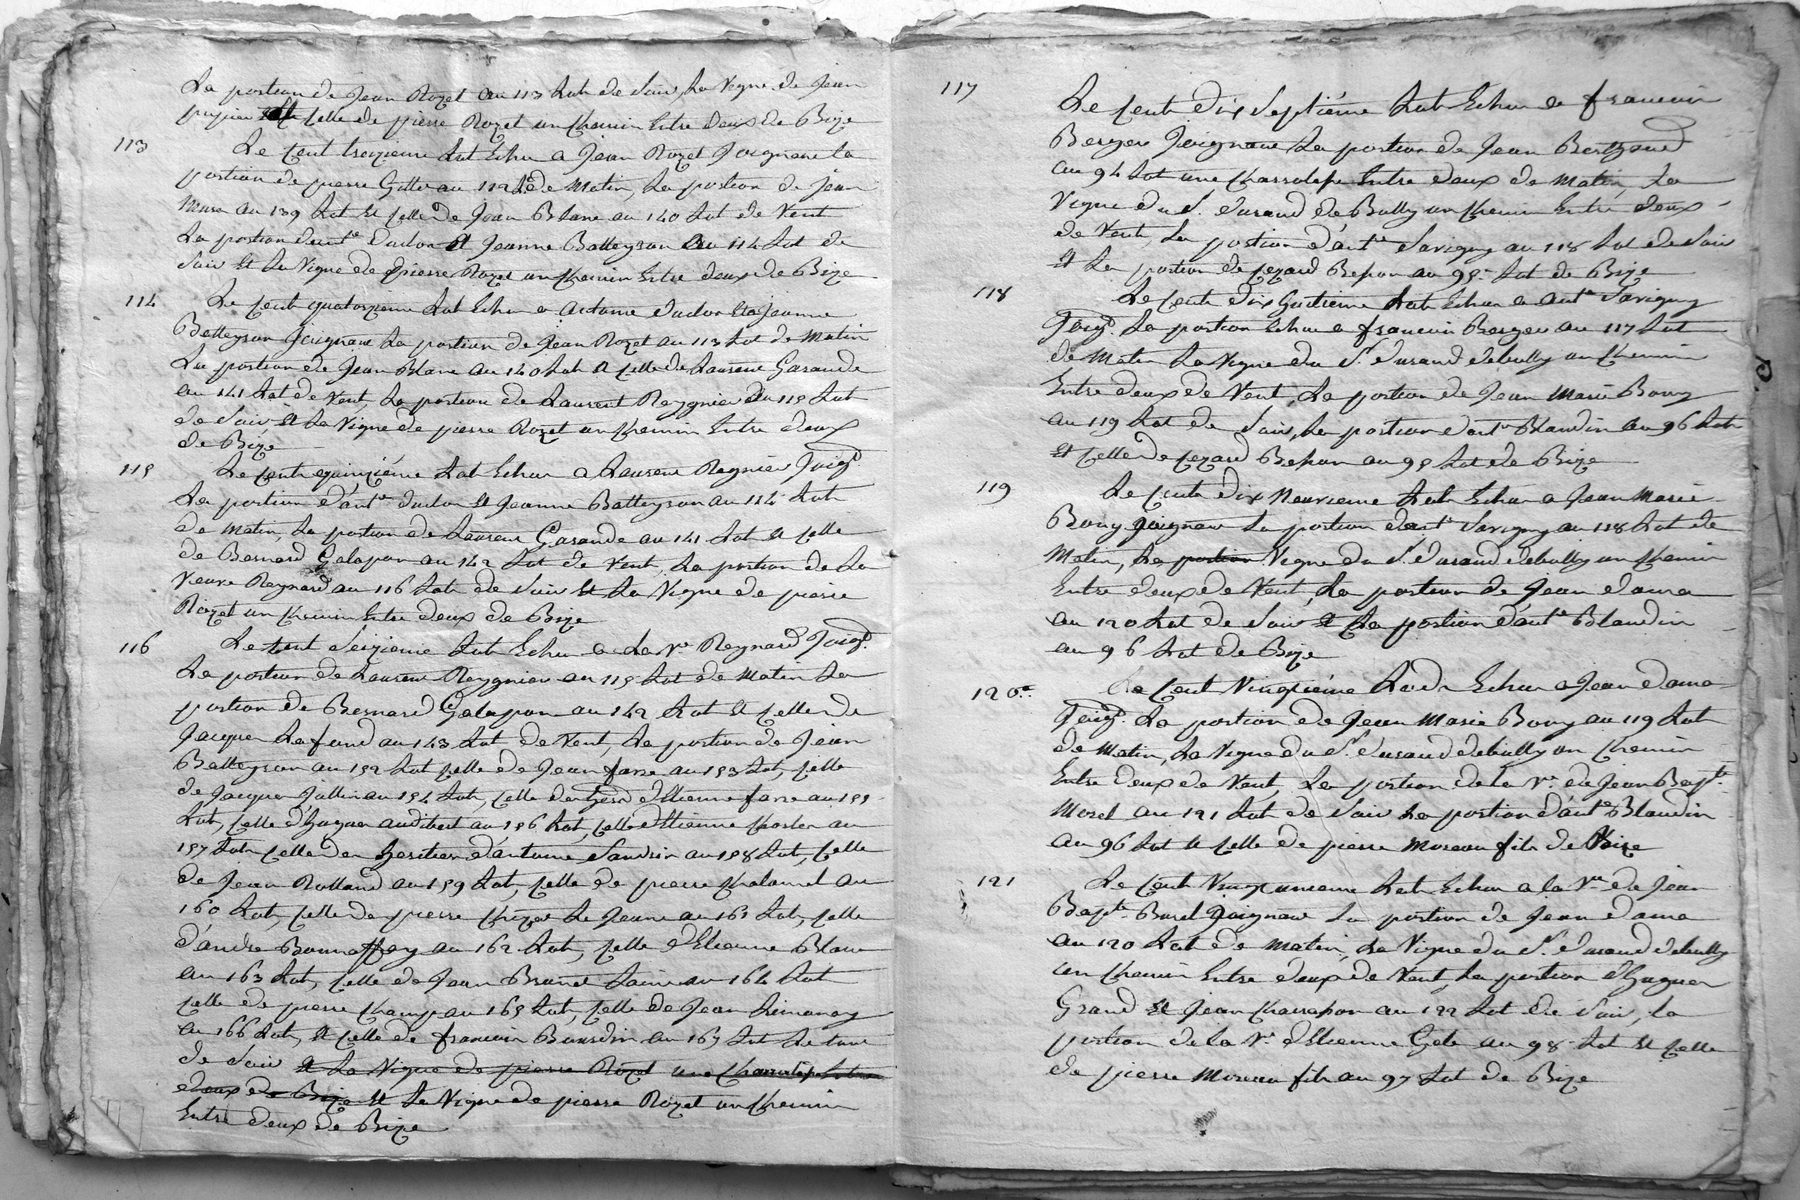 La portion de Jean Rozet au 113 Lot de Soir, La Vigne de Jean
Celle de pierre Rozet un Chemin Entre deux de Bize
113 Le Cent treizieme Lot Echu a Jean Rozet Joignant la
portion de pierre au 112 L. de Matin, La portion de Jean
au 139 Lot Et Celle de Jean Blanc au 140 Lot de Vent
La portion d'ant.e dudon Et Jeanne Batteyson au 114 Lot de
Soir Et La Vigne de pierre Rozet un Chemin Entre deux de Bize
114 Le Cent quatorzieme Lot Echu a Antoine dudon Et a Jeanne
Batteyson Joignant La portion de Jean Rozet au 113 Lot de Matin
La portion de Jean Blanc au 140 Lot Et Celle de Laurent Garaude
au 141 Lot de Vent, La portion de Laurent Reygnier au 115 Lot
de Soir Et La Vigne de pierre Rozet un Chemin Entre deux
de Bize
115 Le Cent quinzième Lot Echu a Laurent Regnier Joig.t
La portion d'ant.e dudon Et Jeanne Batteyson au 114 Lot
de Matin, La portion de Laurent Garaude au 141 Lot Et Celle
de Bernard Galapon au 142 Lot de Vent, La portion de La
Veuve Reynard au 116 Lot de Soir Et La Vigne de pierre
Rozet un Chemin Entre deux de Bize
116 Le Cent Seizieme Lot Echu a La V.e Reynard Joig.t
La portion de Laurent Reygnier au 115 Lot de Matin La
portion de Bernard Galapon au 142 Lot Et Celle de
Jacques Lafond au 143 Lot de Vent, La portion de Jean
Batteyson au 152 Lot Celle de Jean farre au 153 Lot, Celle
de Jacques Jullin au 154 Lot, Celle de d'Etienne farre au 155
Lot, Celle d'hugues audibert au 156 Lot, Celle d'Etienne au
157 Lot Celle des heritiers d'antoine Sandrin au 158 Lot, Celle
de Jean Rolland au 159 Lot, Celle de pierre Chalamel au
160 Lot, Celle de pierre Le Jeune au 161 Lot, Celle
d'andre Bonnaffoy au 162 Lot, Celle d'Etienne Blanc
au 163 Lot, Celle de Jean Brunet au 164 Lot
Celle de pierre Champ au 165 Lot, Celle de Jean
au 166 Lot, Et Celle de francois Bourdin au 167 Lot Le tout
de Soir Et La Vigne de pierre Rozet une Charrotepe Entre
deux de Bize Et La Vigne de pierre Rozet un Chemin
Entre deux de Bize
117 Le Cent dix Septième Lot Echu a francois
Berger Joignant La portion de Jean Berthaud
au 94 Lot une Charrotepe Entre deux de Matin, La
Vigne du S.r durand de Bully un Chemin Entre deux
de Vent, La portion d'ant.e Savigny au 118 Lot de Soir
Et La portion de Cezard Bepon au 95 Lot de Bize
118 Le Cent dix huitieme Lot Echu a ant.e Savigny
Joig.t La portion Echu a francois Berger au 117 Lot
de Matin La Vigne du S.r durand debully un Chemin
Entre deux de Vent, La portion de Jean Marie Bony
au 119 Lot de Soir, La portion d'ant.e Blandin au 96 Lot
Et Celle de Cezard Bepon au 95 Lot de Bize
119 Le Cent dix Neuvieme Lot Echu a Jean Marie
Bony Joignant La portion d'ant.e Savigny au 118 Lot de
Matin, La portion Vigne du S.r durand debully un Chemin
Entre deux de Vent, La portion de Jean dama
au 120 Lot de Soir Et La portion d'ant.e Blandin
au 96 Lot de Bize
120.e Le Cent Vingtième Lot Echu a Jean dama
Joig.t La portion de Jean Marie Bony au 119 Lot
de Matin, La Vigne du S.r durand debully un Chemin
Entre deux de Vent, La portion de la V.e de Jean Bap.te
Morel au 121 Lot de Soir La portion d'ant.e Blandin
au 96 Lot Et Celle de pierre Moreau fils de Bize
121 Le Cent Vingt unieme Lot Echu a la V.e de Jean
Bap.te Joignant La portion de Jean dama
au 120 Lot de Matin, La Vigne du S.r durand debully
un Chemin Entre deux de Vent, La portion d'hugues
Grand Et Jean au 122 Lot de Soir, La
portion de La V.e d'Etienne au 98 Lot Et Celle
de pierre Moreau fils au 97 Lot de Bize